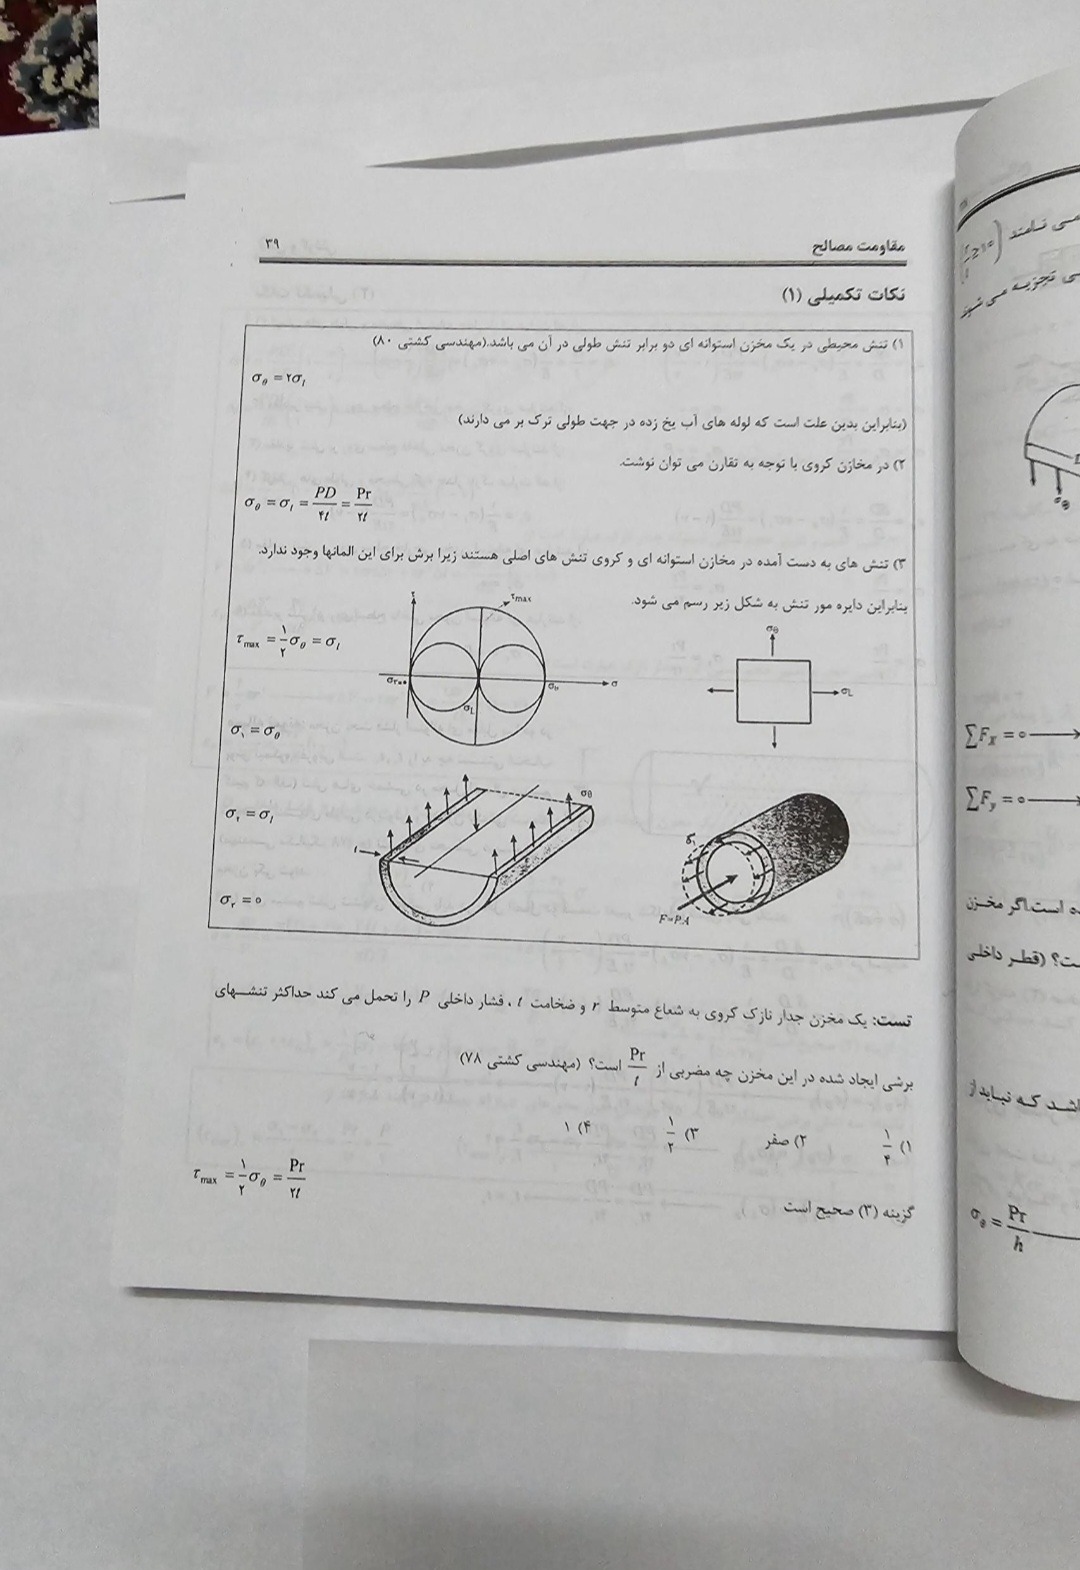 مقاومت مصالح ۳۹
نکات تکمیلی (۱)
۱) تنش محیطی در یک مخزن استوانه ای دو برابر تنش طولی در آن می باشد.(مهندسی کشتی ۸۰)
σ_θ = ۲σ_l
(بنابراین بدین علت است که لوله های آب یخ زده در جهت طولی ترک بر می دارند)
۲) در مخازن کروی با توجه به تقارن می توان نوشت.
σ_θ = σ_l = PD/۴t = Pr/۲t
۳) تنش های به دست آمده در مخازن استوانه ای و کروی تنش های اصلی هستند زیرا برش برای این المانها وجود ندارد.
بنابراین دایره مور تنش به شکل زیر رسم می شود.
τ
τmax
σθ
τ_max = ۱/۲ σ_θ = σ_l
σ
σL
σL
σ_۱ = σ_θ
σθ
σ_۲ = σ_l
t
F=P.A
σ_۳ = ۰
تست: یک مخزن جدار نازک کروی به شعاع متوسط r و ضخامت t ، فشار داخلی P را تحمل می کند حداکثر تنشهای
برشی ایجاد شده در این مخزن چه مضربی از Pr/t است؟ (مهندسی کشتی ۷۸)
۱) ۱/۴ ۲) صفر ۳) ۱/۲ ۴) ۱
τ_max = ۱/۲ σ_θ = Pr/۲t
گزینه (۳) صحیح است
می نامند
تجزیه می شوند
∑F_x = ۰
∑F_y = ۰
است.اگر مخزن
(قطر داخلی
که نباید از
σ_θ = Pr/h